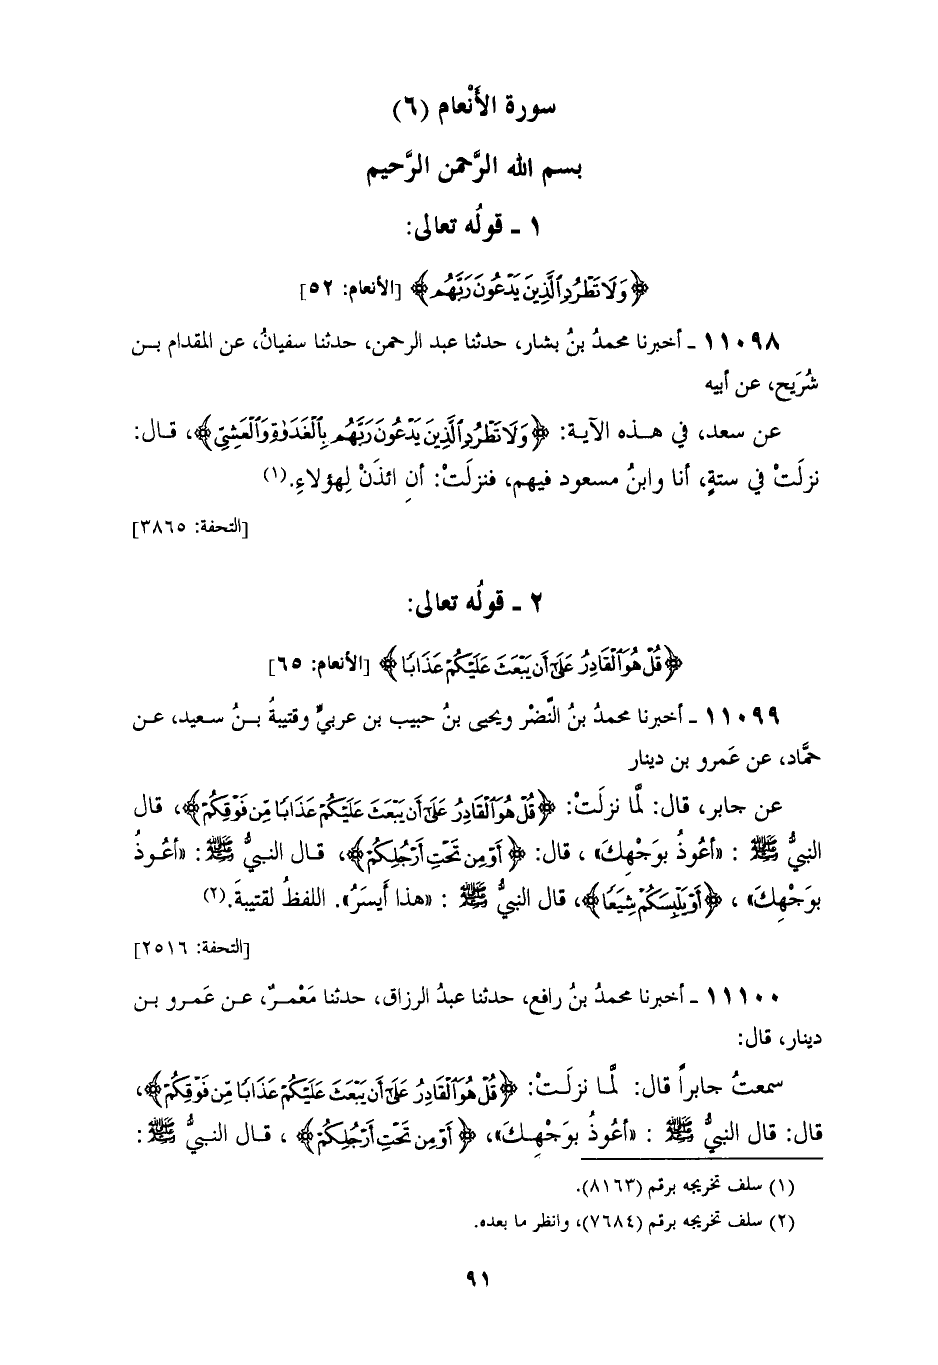 سورة الأَنْعام (٦)
بسم الله الرَّحمن الرَّحيم
١ ـ قولُه تعالى:
﴿وَلَا تَطْرُدِ ٱلَّذِينَ يَدْعُونَ رَبَّهُم﴾ [الأنعام: ٥٢]
١١٠٩٨ ـ أخبرنا محمدُ بنُ بشار، حدثنا عبد الرحمن، حدثنا سفيانُ، عن المقدام بـن
شُرَيح، عن أبيه
عن سعد، في هـذه الآيـة: ﴿وَلَا تَطْرُدِ ٱلَّذِينَ يَدْعُونَ رَبَّهُم بِٱلْغَدَوٰةِ وَٱلْعَشِيِّ﴾، قـال:
نزلَتْ في ستةٍ، أنا وابنُ مسعود فيهم، فنزلَتْ: أنِ ائذَنْ لِهؤلاءِ.(١)
[التحفة: ٣٨٦٥]
٢ ـ قولُه تعالى:
﴿قُلْ هُوَ ٱلْقَادِرُ عَلَىٰٓ أَن يَبْعَثَ عَلَيْكُمْ عَذَابًا﴾ [الأنعام: ٦٥]
١١٠٩٩ ـ أخبرنا محمدُ بنُ النَّضْر ويحيى بنُ حبيب بن عربيٍّ وقتيبةُ بـنُ سـعيد، عـن
حمَّاد، عن عَمرو بن دينار
عن جابر، قال: لمَّا نزلَتْ: ﴿قُلْ هُوَ ٱلْقَادِرُ عَلَىٰٓ أَن يَبْعَثَ عَلَيْكُمْ عَذَابًا مِّن فَوْقِكُمْ﴾، قال
النبيُّ ﷺ : «أعُوذُ بوَجْهِكَ» ، قال: ﴿أَوْ مِن تَحْتِ أَرْجُلِكُمْ﴾، قـال النـبيُّ ﷺ : «أعُـوذُ
بوَجْهِكَ» ، ﴿أَوْ يَلْبِسَكُمْ شِيَعًا﴾، قال النبيُّ ﷺ : «هذا أَيسَرُ». اللفظُ لقتيبةَ.(٢)
[التحفة: ٢٥١٦]
١١١٠٠ ـ أخبرنا محمدُ بنُ رافع، حدثنا عبدُ الرزاق، حدثنا مَعْمَـرٌ، عـن عَمـرو بـن
دينار، قال:
سمعتُ جابراً قال: لمَّـا نزلَـتْ: ﴿قُلْ هُوَ ٱلْقَادِرُ عَلَىٰٓ أَن يَبْعَثَ عَلَيْكُمْ عَذَابًا مِّن فَوْقِكُمْ﴾،
قال: قال النبيُّ ﷺ : «أعُوذُ بوَجْهِـكَ»، ﴿أَوْ مِن تَحْتِ أَرْجُلِكُمْ﴾ ، قـال النـبيُّ ﷺ :
(١) سلف تخريجه برقم (٨١٦٣).
(٢) سلف تخريجه برقم (٧٦٨٤)، وانظر ما بعده.
٩١